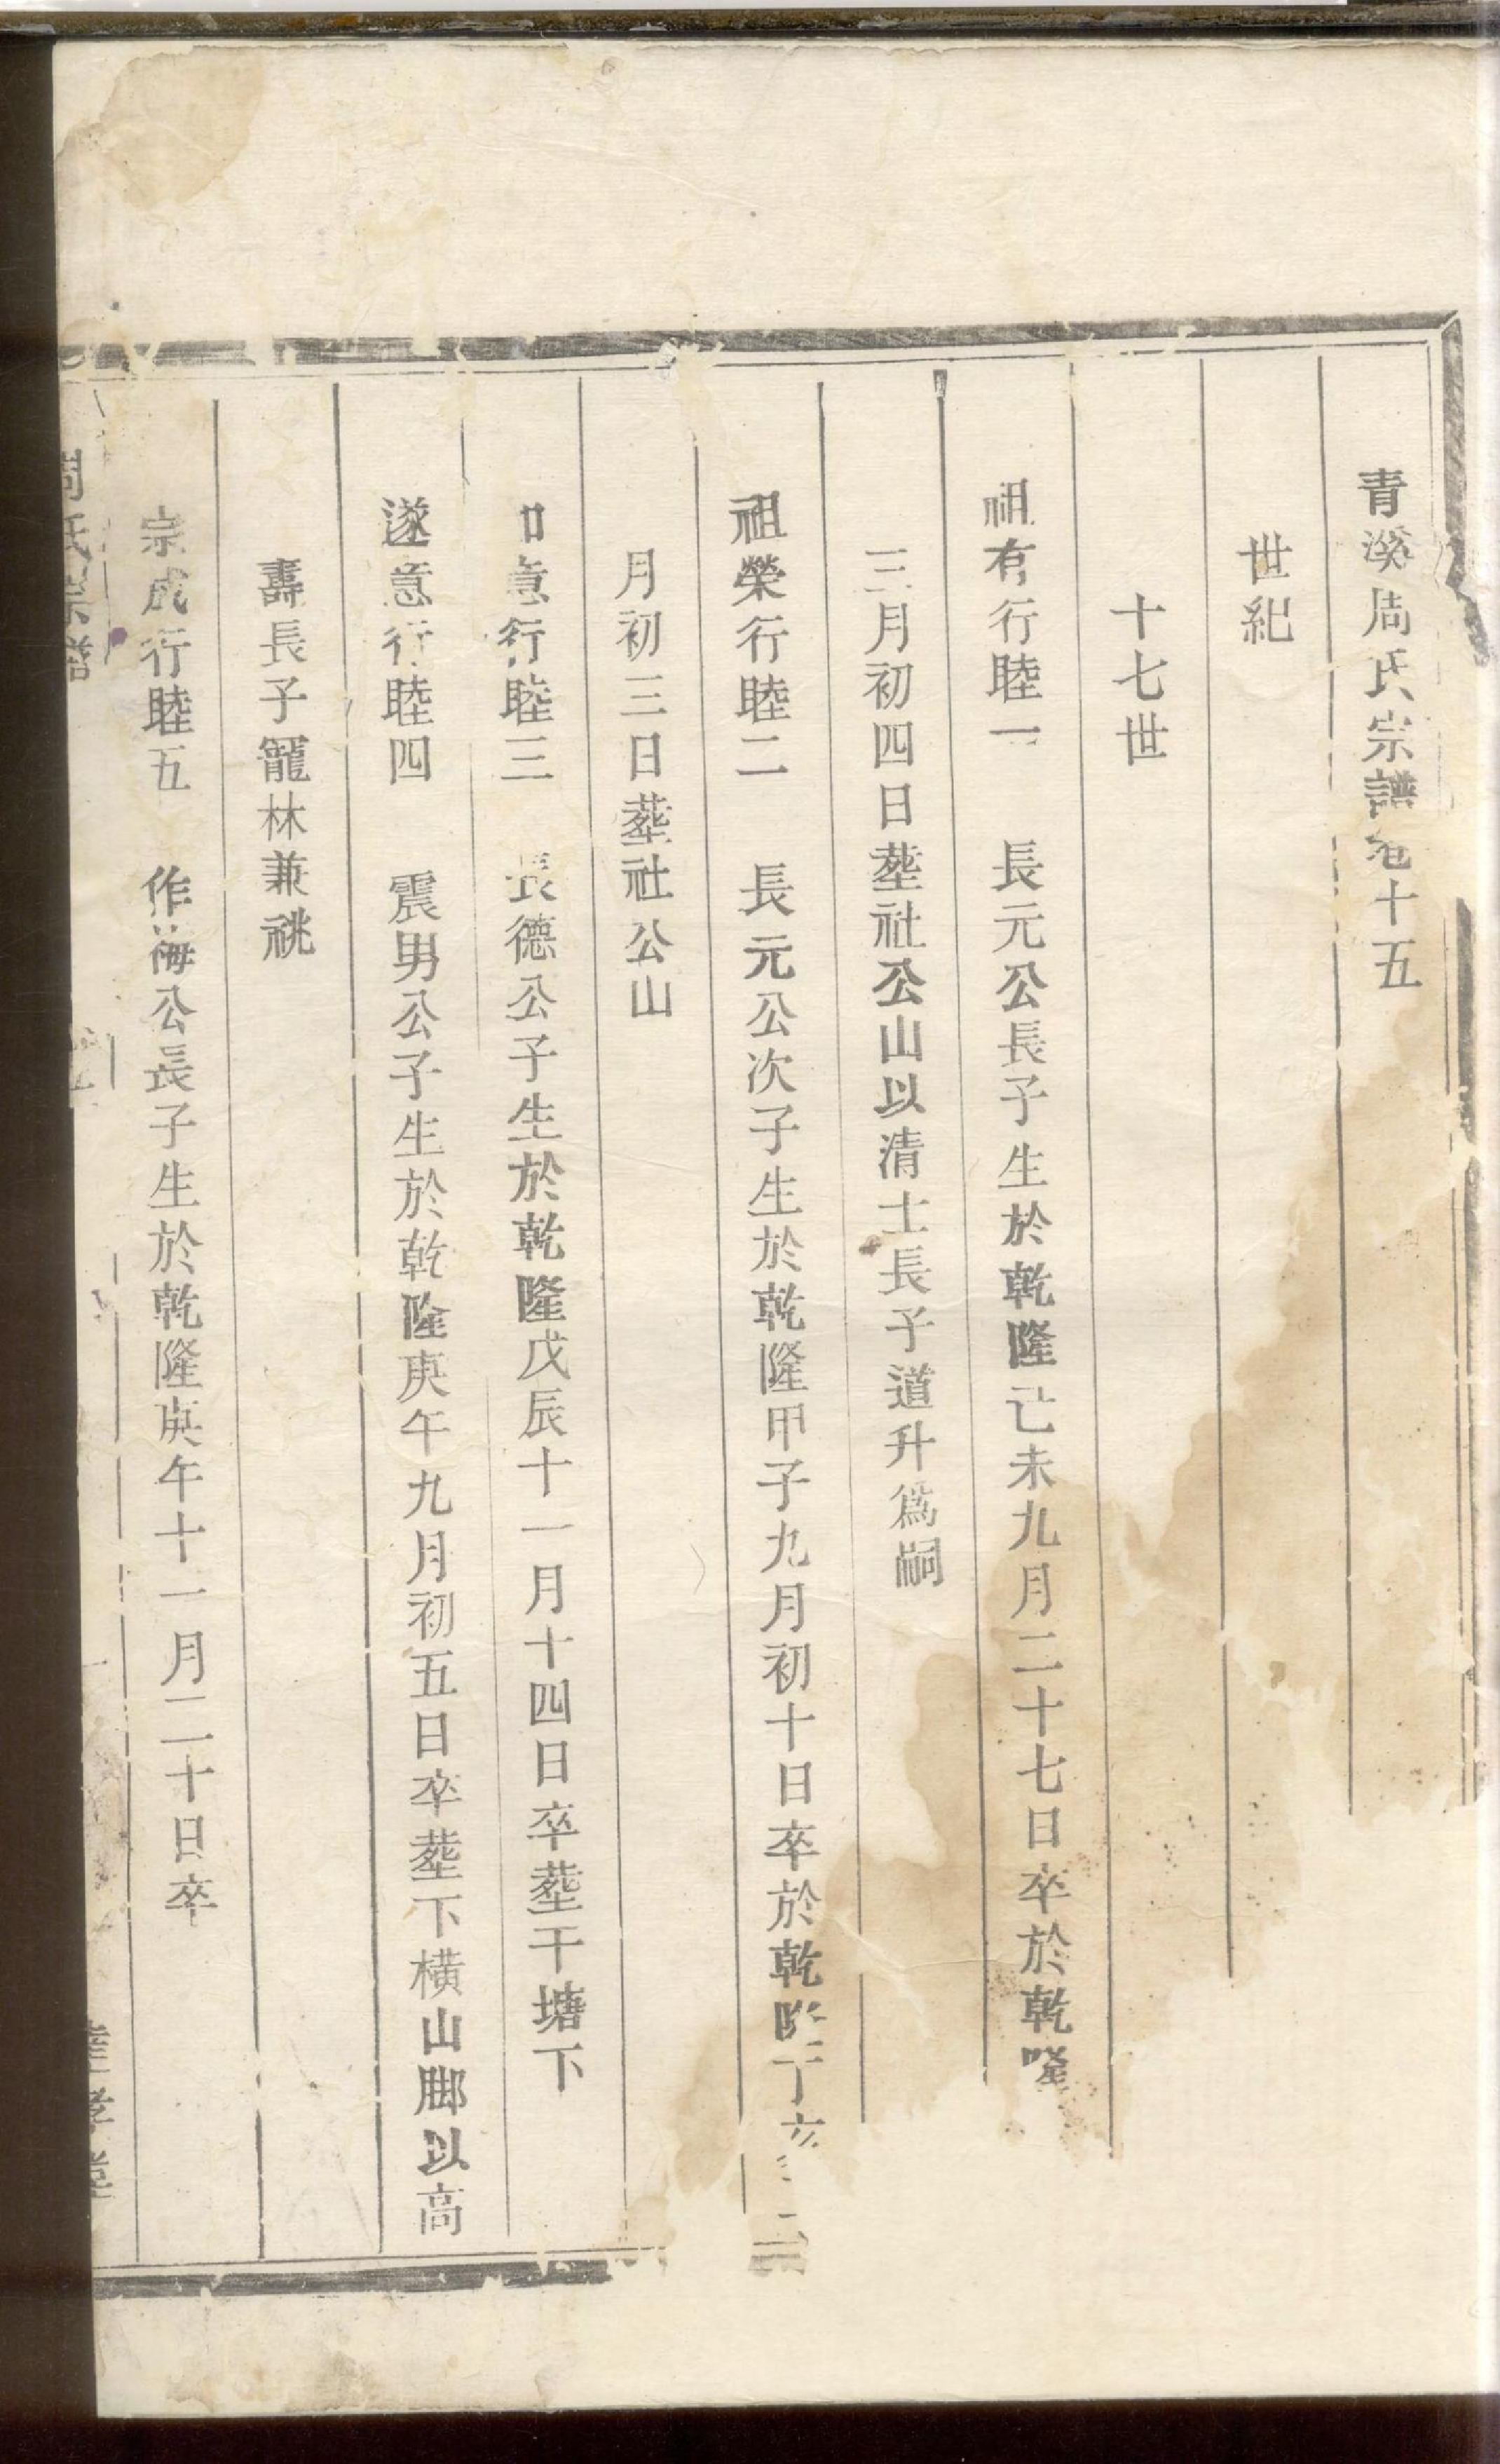 青溪周氏宗譜卷十五
世紀
十七世
祖有行睦一 長元公長子生於乾隆己未九月二十七日卒於乾隆
三月初四日塟社公山以清士長子道升爲嗣
祖榮行睦二 長元公次子生於乾隆甲子九月初十日卒於乾隆丁亥二
月初三日塟社公山
意行睦三 長德公子生於乾隆戊辰十一月十四日卒塟干塘下
遂意行睦四 震男公子生於乾隆庚午九月初五日卒塟下橫山脚以高
壽長子寵林兼祧
宗成行睦五 作海公長子生於乾隆庚午十一月二十日卒
周氏宗譜